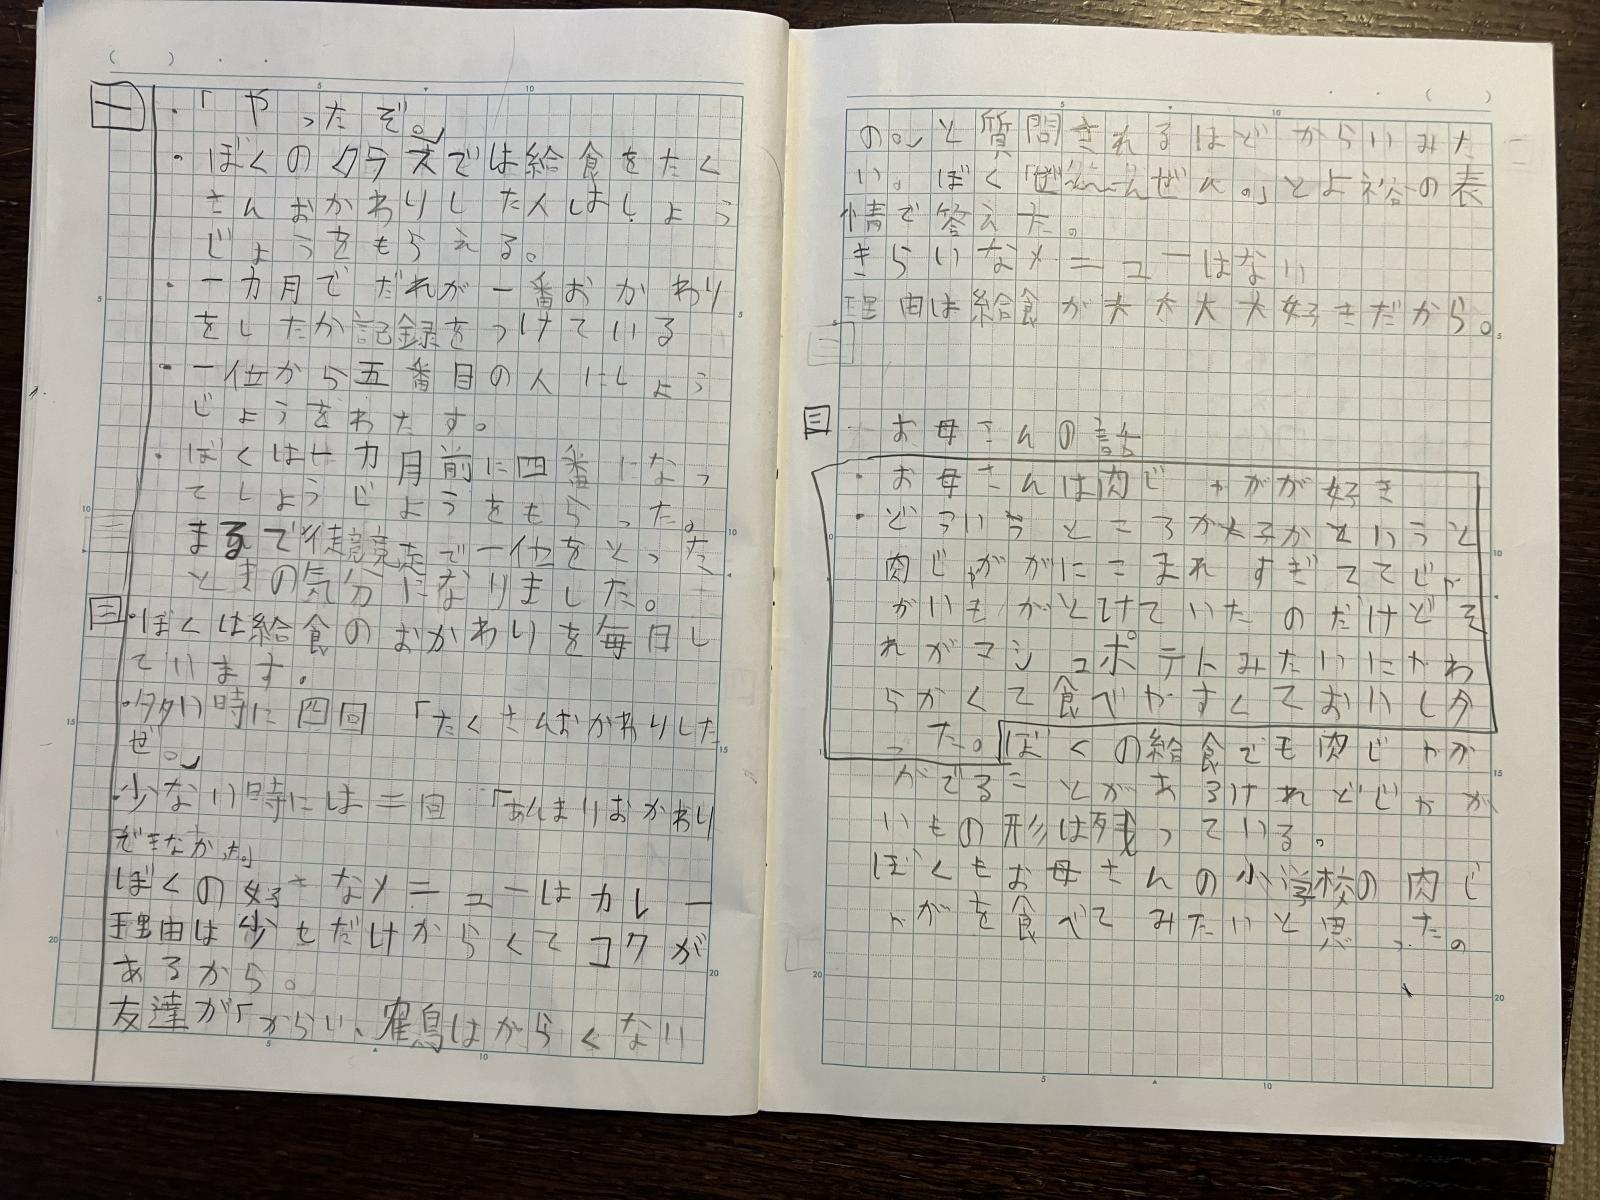 一
・「やったぞ。」
・ぼくのクラスでは給食をたく
さんおかわりした人はしょう
じょうをもらえる。
・一カ月でだれが一番おかわり
をしたか記録をつけている
・一位から五番目の人にしょう
じょうをわたす。
・ぼくは七カ月前に四番になっ
てしょうじょうをもらった。
まるで徒競走で一位をとった
ときの気分になりました。
二
・ぼくは給食のおかわりを毎日し
ています。
・多い時に四回「たくさんおかわりした
ぜ。」
・少ない時には二回「あんまりおかわり
できなかった。」
ぼくの好きなメニューはカレー
理由は少しだけからくてコクが
あるから。
友達が「からい、鶴はからくない
の。」と質問されるほどからいみた
い。ぼく「ぜんぜん。」とよ裕の表
情で答えた。
きらいなメニューはない
理由は給食が大大大大好きだから。
三
お母さんの話
・お母さんは肉じゃがが好き
・どういうところが好かというと
肉じゃががにこまれすぎててじゃ
がいもがとけていたのだけどそ
れがマシュポテトみたいにやわ
らかくて食べやすくておいしか
った。ぼくの給食でも肉じゃが
がでることがあるけれどじゃが
いもの形は残っている。
ぼくもお母さんの小学校の肉じ
ゃがを食べてみたいと思った。